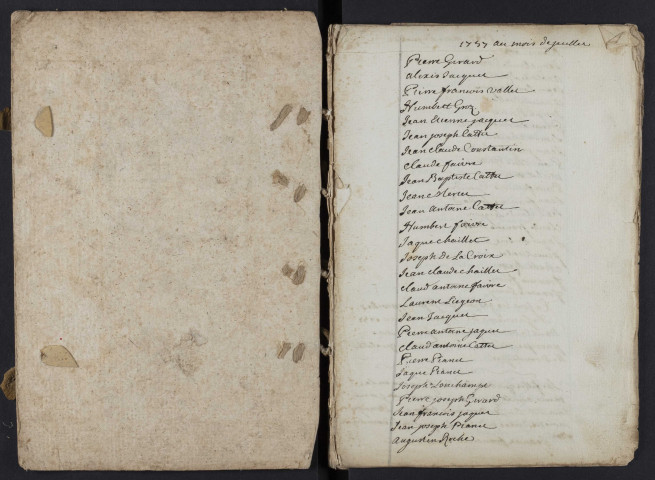 1757 au mois de juillet
Pierre Girard
alexis Jacques
Pierre francois vallet
Humbert
Jean Etienne jacques
Jean joseph Cattet
Jean Claude Constantin
Claude faivre
Jean Baptiste Cattet
Jean
Jean Antoine Cattet
Humbert faivre
Jaque Chaillet
Joseph de La Croix
Jean claude chaillet
claud antoine faivre
Laurent Liegeon
Jean Jacques
Pierre antoine jaques
claud antoine Cattet
Pierre
Jaque
Joseph Lonchamps
Pierre joseph Girard
Jean francois jaques
Jean joseph
Augustin Roche